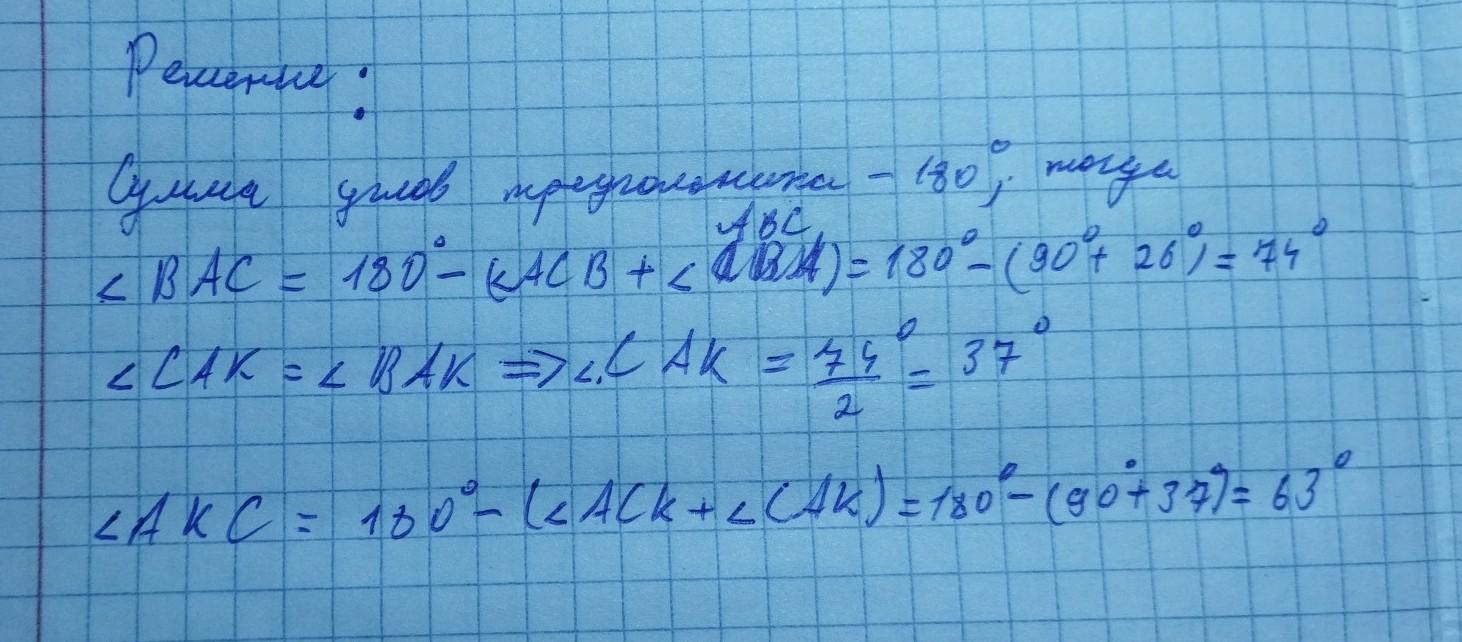 Решение:
Сумма углов треугольника - 180°; тогда
ABC
<BAC = 180° - (<ACB + < ) = 180° - (90° + 26°) = 74°
<CAK = <BAK => <CAK = 74°/2 = 37°
<AKC = 180° - (<ACK + <CAK) = 180° - (90° + 37°) = 63°